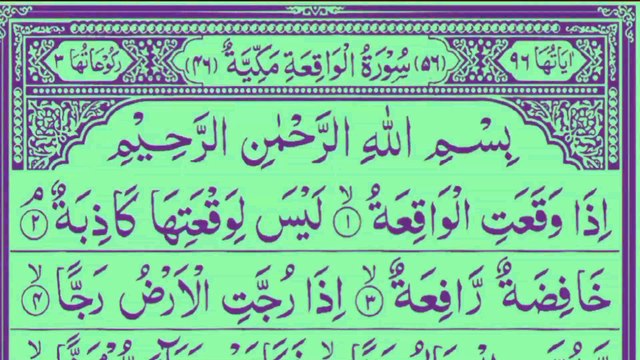 اٰيَاتُهَا ٩٦ (٥٦) سُوْرَةُ الْوَاقِعَةِ مَكِّيَّةٌ (٤٦) رُكُوْعَاتُهَا ٣
بِسْمِ اللّٰهِ الرَّحْمٰنِ الرَّحِيْمِ
اِذَا وَقَعَتِ الْوَاقِعَةُ ۙ‏ ١ لَيْسَ لِوَقْعَتِهَا كَاذِبَةٌ ۘ‏ ٢
خَافِضَةٌ رَّافِعَةٌ ۙ‏ ٣ اِذَا رُجَّتِ الْاَرْضُ رَجًّا ۙ‏ ٤